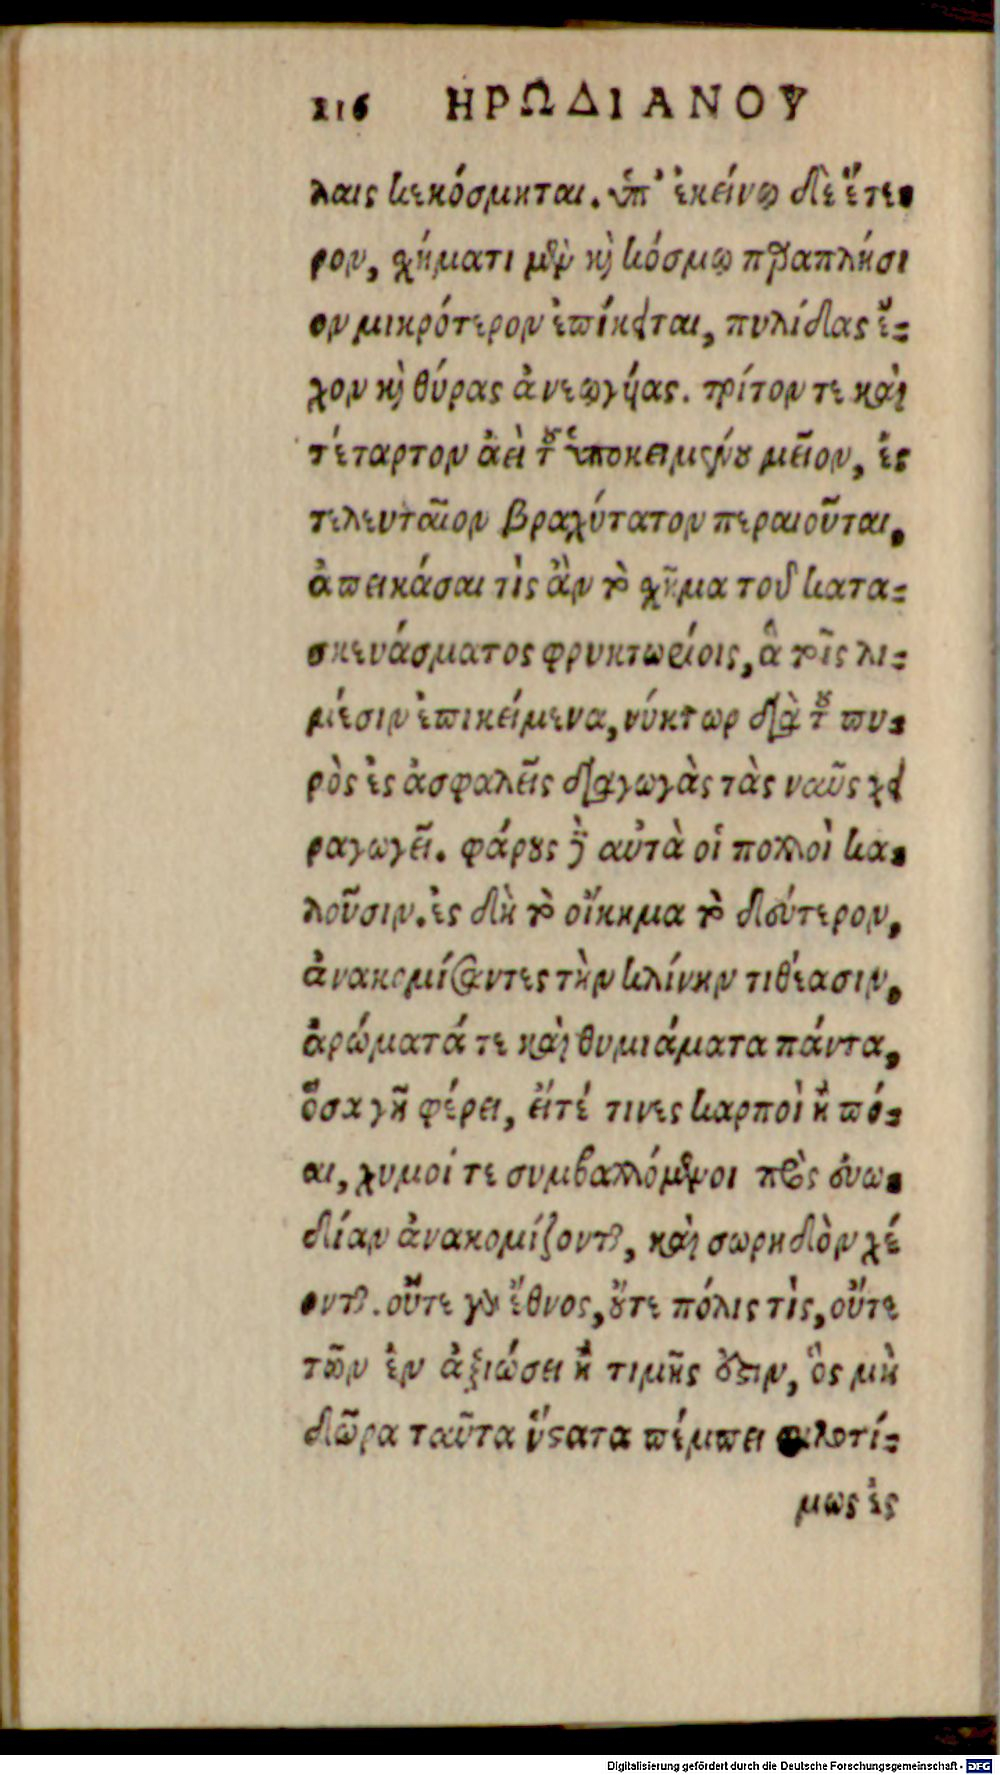 116 ΗΡΩΔΙΑΝΟΥ
λαις κεκόσμηται. ὑπ' ἐκείνῳ δὲ ἕτε-
ρον, χήματι μὲν κὶ κόσμῳ παραπλήσι
ον μικρότερον ἐπίκειται, πυλίδας ἔ-
χον κὶ θύρας ἀνεῳγύας. τρίτον τε καὶ
τέταρτον ἀεὶ τοῦ ὑποκειμένου μεῖον, ἐς
τελευταῖον βραχύτατον περαιοῦται.
ἀπεικάσαι τὶς ἂν τὸ χῆμα τοῦ κατα-
σκευάσματος φρυκτωρίοις, ἃ τοῖς λι-
μέσιν ἐπικείμενα, νύκτωρ διὰ τοῦ πυ-
ρὸς ἐς ἀσφαλεῖς διαγωγὰς τὰς ναῦς χει
ραγωγεῖ. φάρους δὲ αὐτὰ οἱ πολλοὶ κα-
λοῦσιν. ἐς δὴ τὸ οἴκημα τὸ δεύτερον,
ἀνακομίσαντες τὴν κλίνην τιθέασιν,
ἀρώματά τε καὶ θυμιάματα πάντα,
ὅσα γῆ φέρει, εἴτέ τινες καρποὶ ἢ πό-
αι, χυμοί τε συμβαλλόμενοι πρὸς εὐω-
δίαν ἀνακομίζονται, καὶ σωρηδὸν χέ
ονται. οὔτε γὰρ ἔθνος, οὔτε πόλις τὶς, οὔτε
τῶν ἐν ἀξιώσει ἢ τιμῆς οὖσιν, ὃς μὴ
δῶρα ταῦτα ὕστατα πέμπει φιλοτί-
μως ἐς
Digitalisierung gefördert durch die Deutsche Forschungsgemeinschaft - DFG